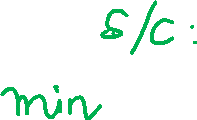 S/C:
min